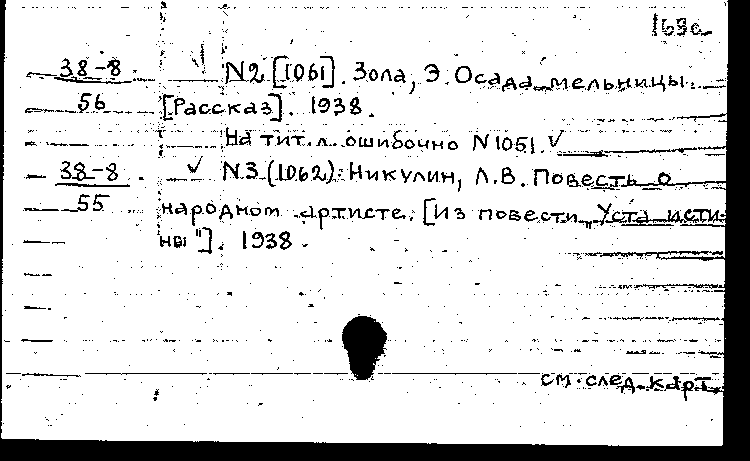 163а
38-8 √ N2 [1061]. Зола, Э. Осада мельницы.
56 [Рассказ]. 1938.
На тит. л. ошибочно N1051. √
38-8 √ N3 (1062): Никулин, Л.В. Повесть о
55 народном артисте. [Из повести „Уста исти-
ны"]. 1938.
см. след. карт.